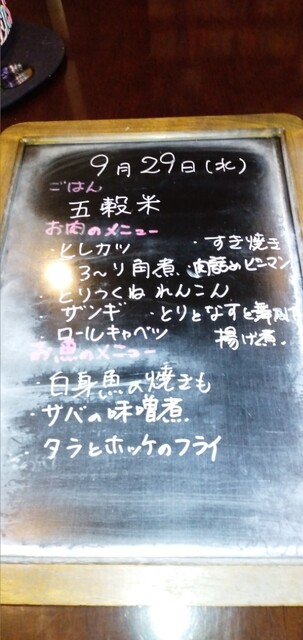 9月29日(水)
ごはん
五穀米
お肉のメニュー
・ヒレカツ ・すき焼き
・3〜り角煮、肉詰めピーマン
・とりつくね れんこん
・ザンギ ・とりとなすと舞茸の
・ロールキャベツ 揚げ煮。
お魚のメニュー
・白身魚の焼きも
・サバの味噌煮
・タラとホッケのフライ